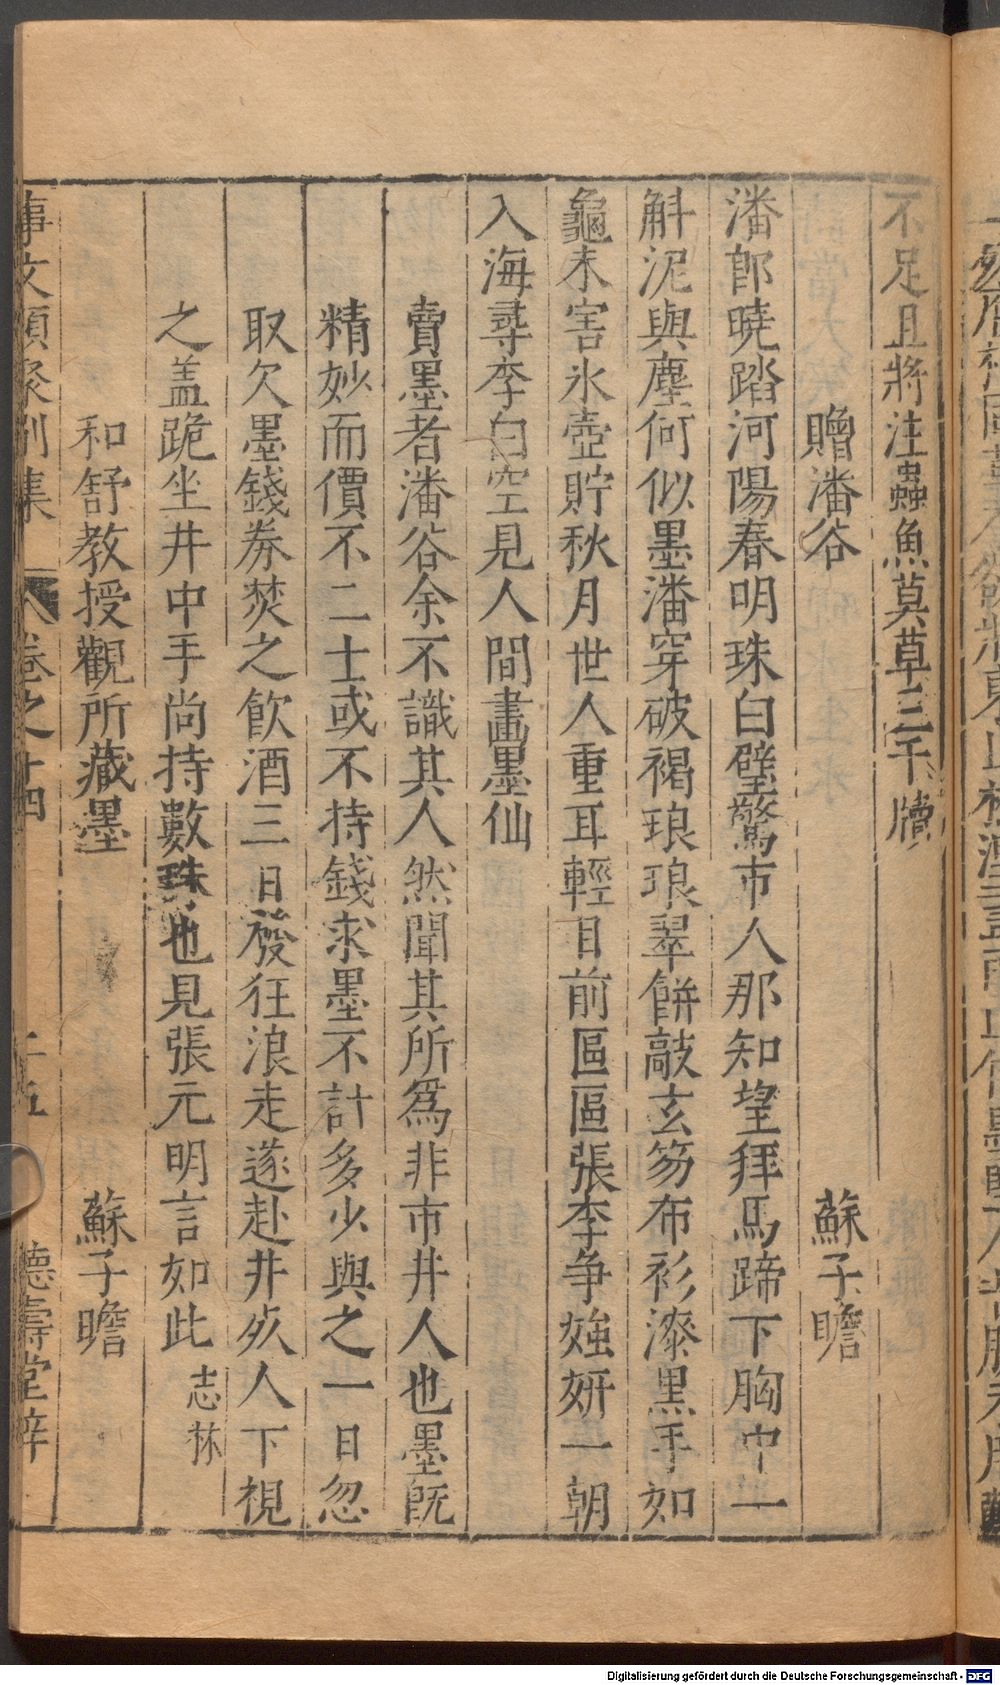 不足且將注蟲魚莫草三千牘
贈潘谷 蘇子瞻
潘郎曉踏河陽春明珠白璧驚市人那知望拜馬蹄下胸中一
斛泥與塵何似墨潘穿破褐琅琅翠餅敲玄笏布衫漆黑手如
龜未害氷壺貯秋月世人重耳輕目前區區張李争䧺妍一朝
入海尋李白空見人間畫墨仙
賣墨者潘谷余不識其人然聞其所爲非市井人也墨旣
精妙而價不二士或不持錢求墨不計多少與之一日忽
取欠墨錢劵焚之飲酒三日發狂浪走遂赴井死人下視
之盖跪坐井中手尚持數珠也見張元明言如此 志林
和舒教授觀所藏墨 蘇子瞻
事文類聚別集 卷之十四 十五 德壽堂梓
Digitalisierung gefördert durch die Deutsche Forschungsgemeinschaft - DFG